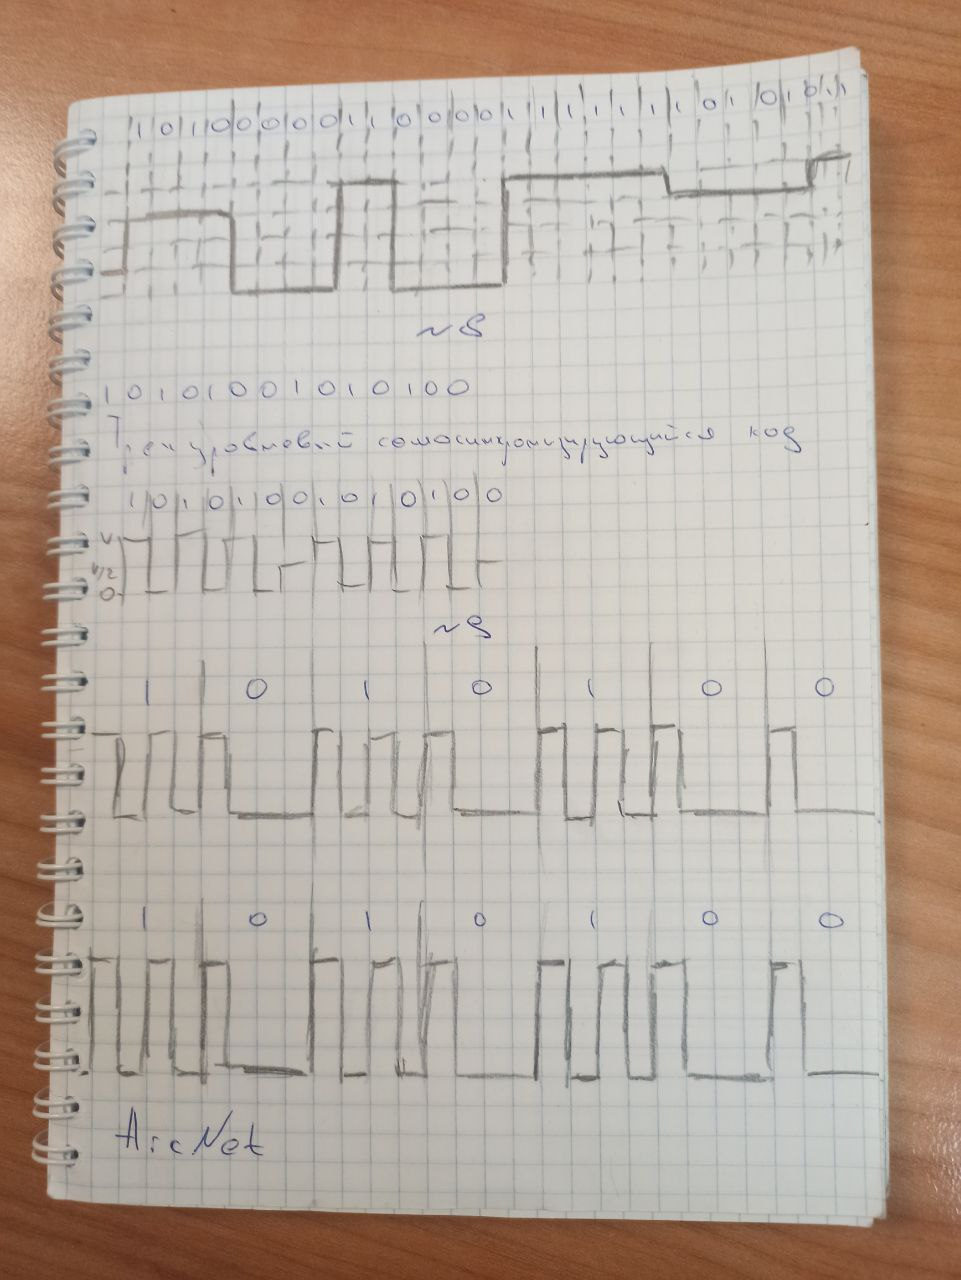 1 0 1 0 0 0 0 0 1 1 0 0 0 0 1 1 1 1 1 1 1 0 1 0 1 0 1 1
№8
1 0 1 0 1 0 0 1 0 1 0 1 0 0
Трехуровневый самосинхронизирующийся код
1 0 1 0 1 0 0 1 0 1 0 1 0 0
V
V/2
0
№9
1 0 1 0 1 0 0
1 0 1 0 1 0 0
ArcNet